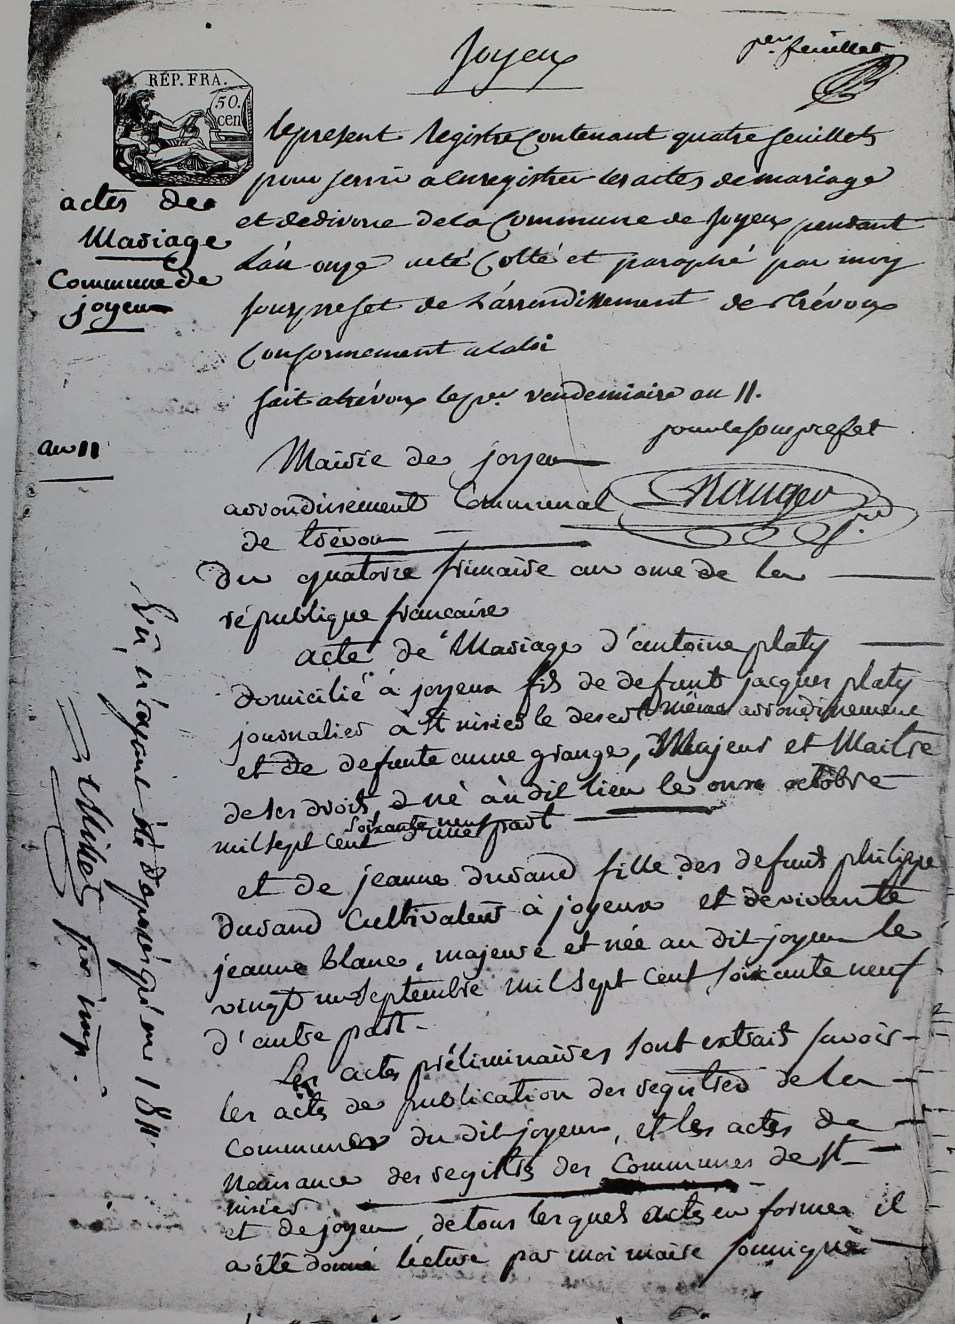 Joyeux
per feuillet
RÉP. FRA.
50.
cen
le present Registre Contenant quatre feuillets
pour servir a Enregistrer les actes de mariage
et de divorce de la Commune de Joyeux pendant
L'an onze a été Cotté et paraphé par moy
sousprefet de L'arrondissement de trévoux
Conformement a la loi
fait a trévoux le per vendemiaire an 11.
pour le sousprefet
actes de
Mariage
Commune de
joyeux
an 11
Mairie de joyeux
arrondissement Communal
de trévoux
Du quatorze frimaire an onze de la
république francaise
acte de Mariage d'antoine platy
domicilié à joyeux fils de defunt jacques platy
journalier à St nisier le desert même arrondissement
et de defunte anne grange, Majeur et Maitre
de ses droits né àu dit lieu le onze octobre
mil sept cent soixante neuf d'une part
et de jeanne durand fille des defunt philippe
durand Cultivateur à joyeux et de vivante
jeanne blanc, majeure et née au dit joyeux le
vingt septembre mil sept cent soixante neuf
d'autre part
Les actes préliminaires sont extrait savoir
les actes de publication des registres de la
Commune du dit joyeux, et les actes de
Naissance des registres des Communes de St
nisier
et de joyeux de tous lesquels actes en forme il
a été donné lecture par moi maire soussigné
Vû n'ayant été
1811